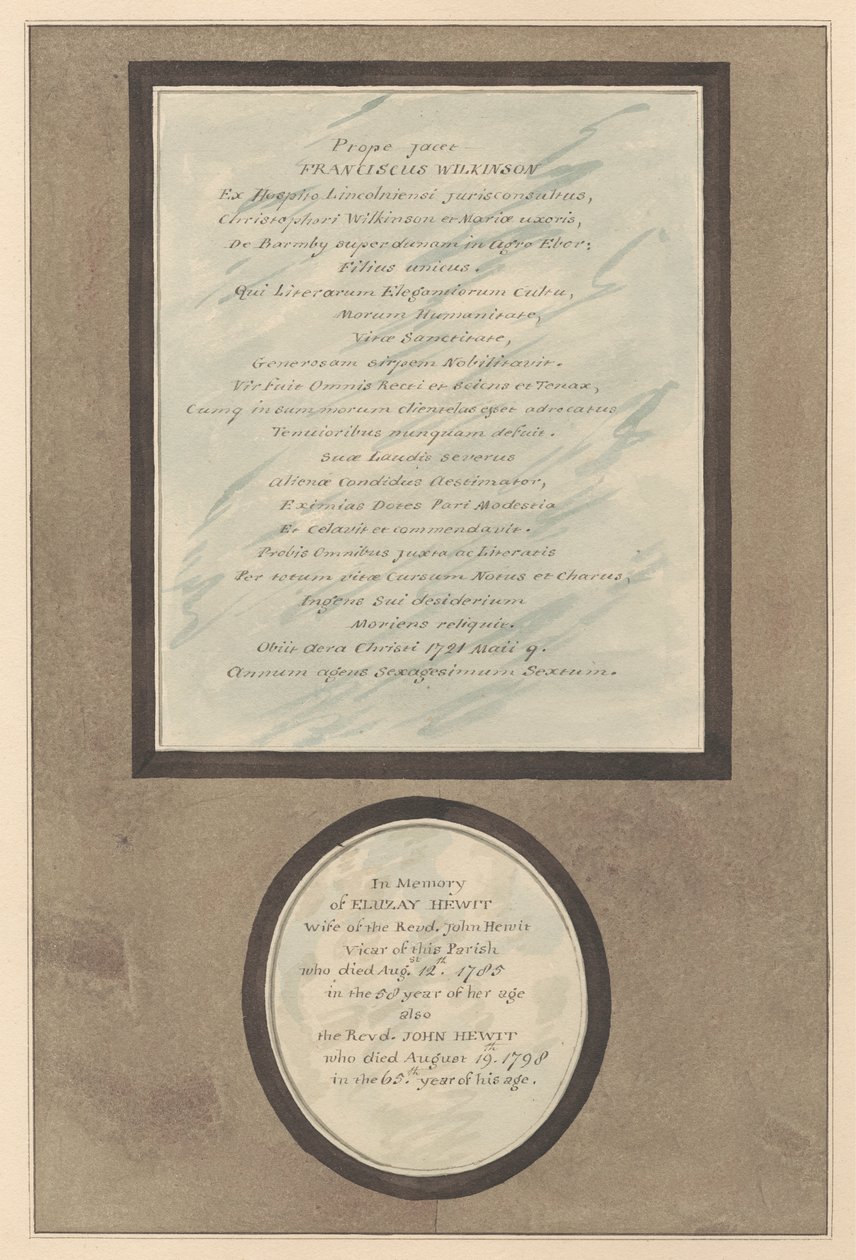 Prope jacet
FRANCISCUS WILKINSON
Ex Hospito Lincolniensi jurisconsultus,
Christophori Wilkinson et Mariæ uxoris,
De Barmby super dunam in agro Ebor:
Filius unicus.
Qui Literarum Elegantiorum Cultu,
Morum Humanitate,
Vitæ Sanctitate,
Generosam sirpem Nobilitavit.
Vir Fuit Omnis Recti et sciens et Tenax,
Cumq in summorum clientelas esset advocatus
Tenuioribus nunquam defuit.
Suæ Laudis severus
Alienæ Condidus Aestimator,
Eximias Dotes Pari Modestia
Et Celavit et commendavit.
Probis Omnibus juxta ac Literatis
Per totum vitæ Cursum Notus et Charus,
Ingens Sui desiderium
Moriens reliquit.
Obiit Aera Christi 1721 Maii 9.
Annum agens Sexagesimum Sextum.
In Memory
of ELUZAY HEWIT
Wife of the Revd. John Hewit
Vicar of this Parish
who died Aug.st 12th. 1785
in the 58 year of her age
also
the Revd. JOHN HEWIT
who died August 19th. 1798
in the 65.th year of his age.